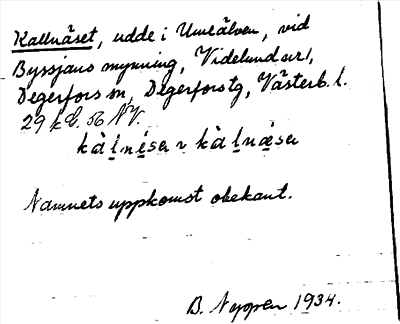 Kallnäset, udde i Umeälven, vid
Byssjans mynning, Videlund
Degerfors sn, Degerforstg, Västerb. l.
29
kàlnéseṛ kàlnǽseṛ
Namnets uppkomst obekant.
B. Nyqen 1934.